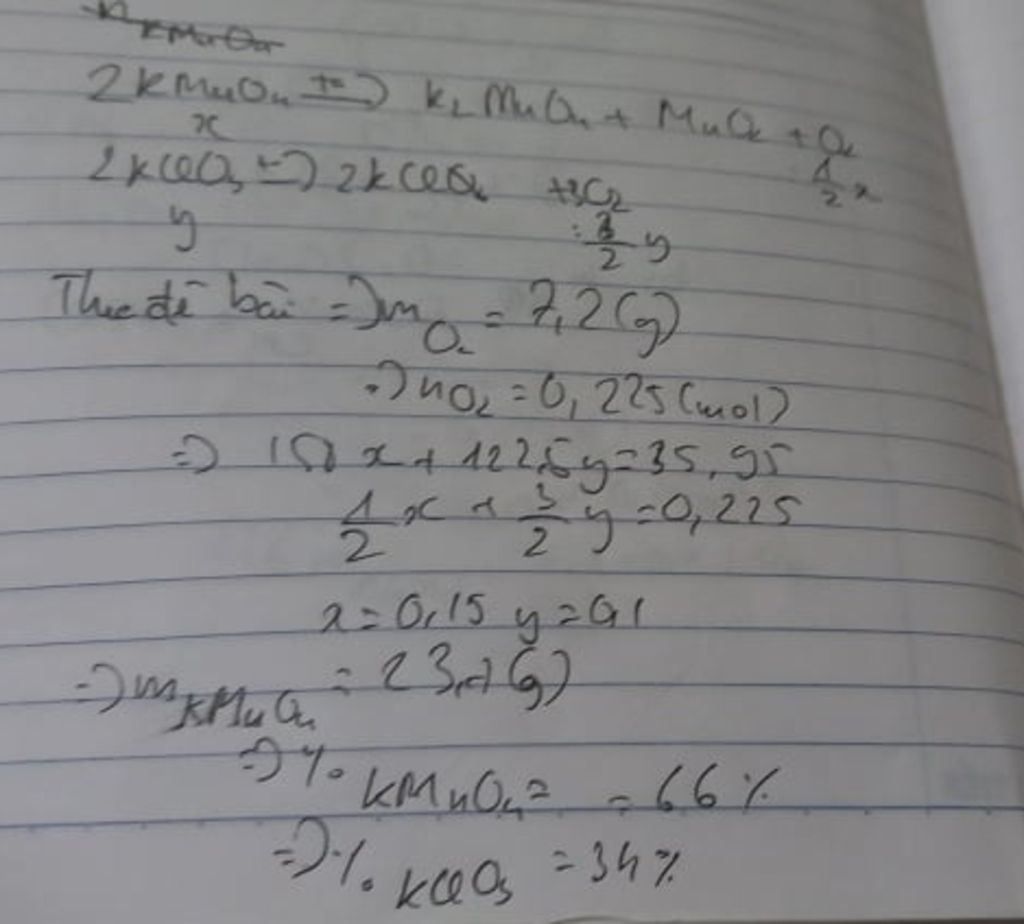 2KMnO4 t° => K2MnO4 + MnO2 + O2
x 1/2 x
2KClO3 => 2KClO2 +3O2
y : 3/2 y
Theo đề bài => mO2 = 7,2(g)
=> nO2 = 0,225(mol)
=> 158 x + 122,5y = 35,95
1/2 x + 3/2 y = 0,225
x = 0,15 y = 0,1
=> mKMnO4 = 23,7(g)
=> % KMnO4 = = 66%
=> % KClO3 = 34%